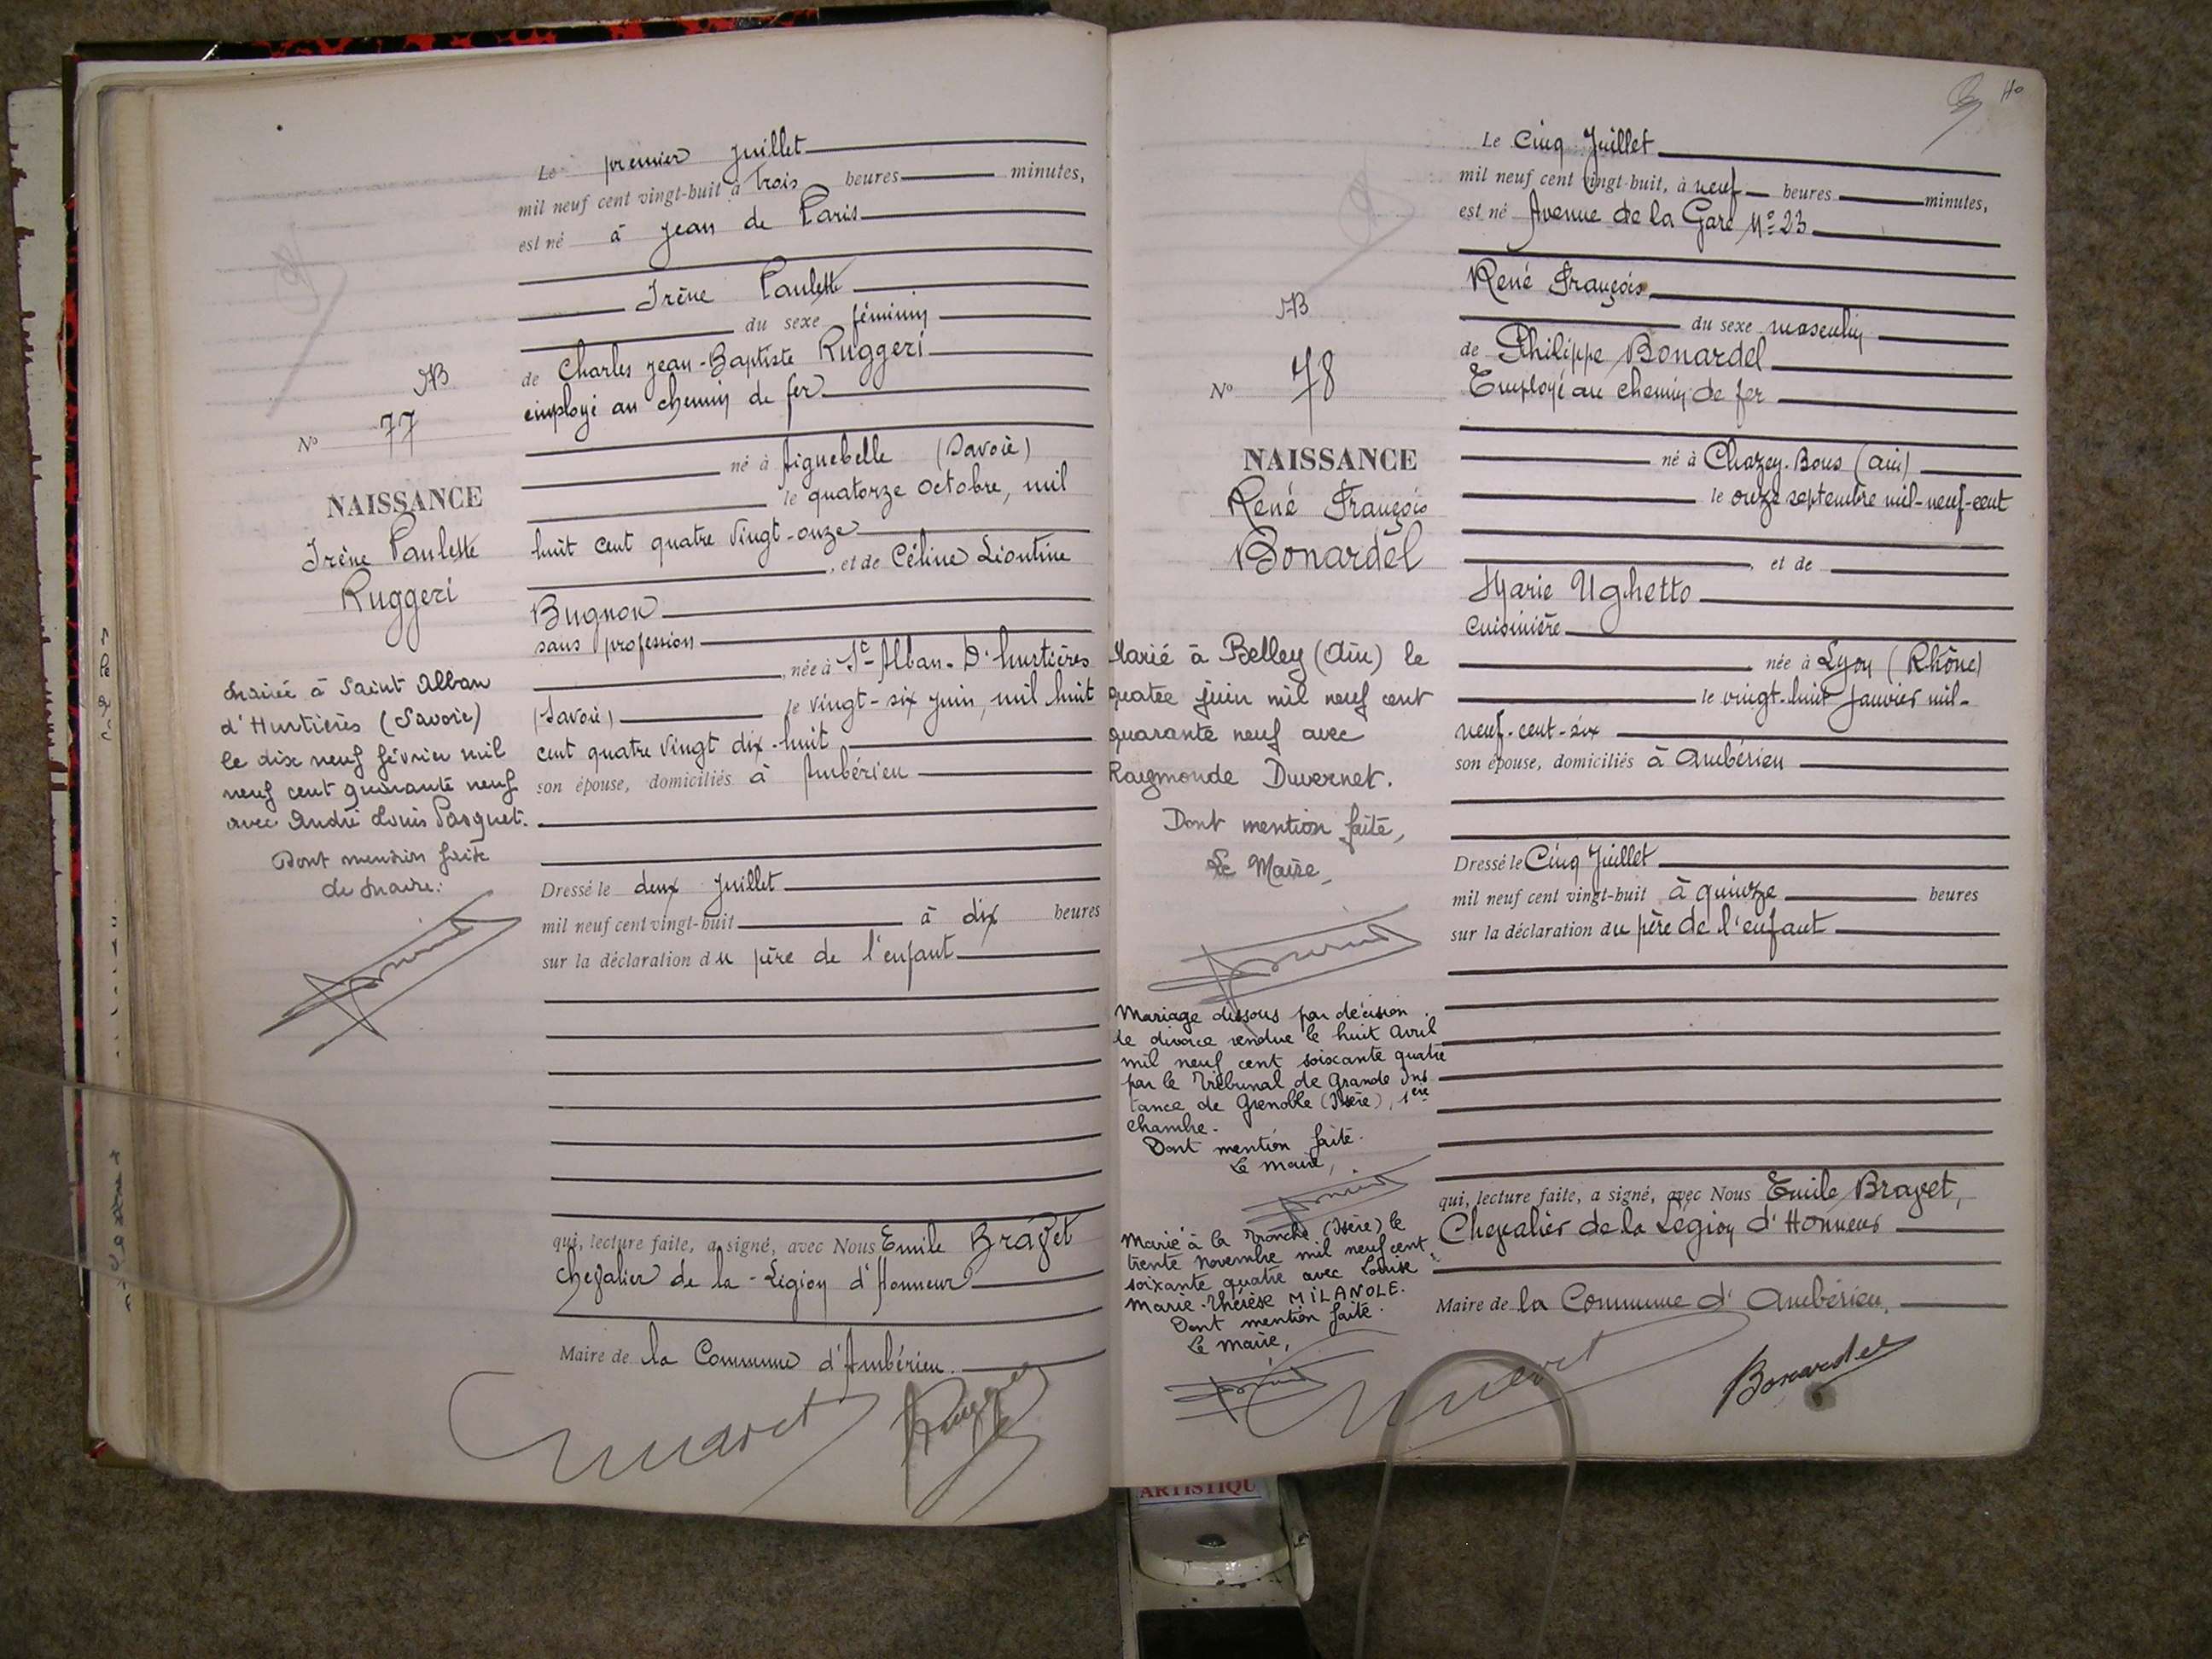 Le premier juillet
mil neuf cent vingt-huit à trois heures minutes,
est né à Jean de Paris
Irène Paulette
du sexe féminin
de Charles Jean-Baptiste Ruggeri
employé au chemin de fer
né à Aiguebelle (Savoie)
le quatorze octobre, mil
huit cent quatre vingt-onze
, et de Céline Léontine
Bugnon
sans profession
, née à St-Alban-D'hurtières
(Savoie) le vingt-six juin, mil huit
cent quatre vingt dix-huit
son épouse, domiciliés à Ambérieu
Dressé le deux juillet
mil neuf cent vingt-huit à dix heures
sur la déclaration du père de l'enfant
qui, lecture faite, a signé, avec Nous Emile Bravet
chevalier de la Légion d'Honneur
Maire de la Commune d'Ambérieu.
N° 77
NAISSANCE
Irène Paulette
Ruggeri
Mariée à Saint Alban
d'Hurtières (Savoie)
le dix neuf février mil
neuf cent quarante neuf
avec André Louis Pasquet.
Dont mention faite
Le Maire:
110
Le Cinq Juillet
mil neuf cent vingt-huit, à neuf heures minutes,
est né Avenue de la Gare N° 23
René François
du sexe masculin
de Philippe Bonardel
Employé au chemin de fer
né à Chazey-Bons (Ain)
le onze septembre mil-neuf-cent
, et de
Marie Ughetto
Cuisinière
née à Lyon (Rhône)
le vingt-huit Janvier mil-
neuf-cent-six
son épouse, domiciliés à Ambérieu
Dressé le Cinq Juillet
mil neuf cent vingt-huit à quinze heures
sur la déclaration du père de l'enfant
qui, lecture faite, a signé, avec Nous Emile Bravet,
Chevalier de la Légion d'Honneur
Maire de la Commune d'Ambérieu,
Bonardel
N° 78
NAISSANCE
René François
Bonardel
Marié à Belley (Ain) le
quatre juin mil neuf cent
quarante neuf avec
Raymonde Duvernet.
Dont mention faite,
Le Maire,
Mariage dissous par décision
de divorce rendue le huit Avril
mil neuf cent soixante quatre
par le Tribunal de Grande Ins
tance de Grenoble (Isère), 1ère
chambre.
Dont mention faite.
Le maire,
Marié à la Tronche (Isère) le
trente novembre mil neuf cent
soixante quatre avec Louise
Marie-Thérèse MILANOLE.
Dont mention faite.
Le maire,
ARTISTIQU